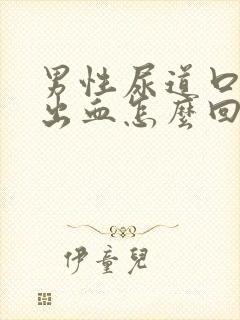 男性尿道口
出血怎麼回
伊童兒